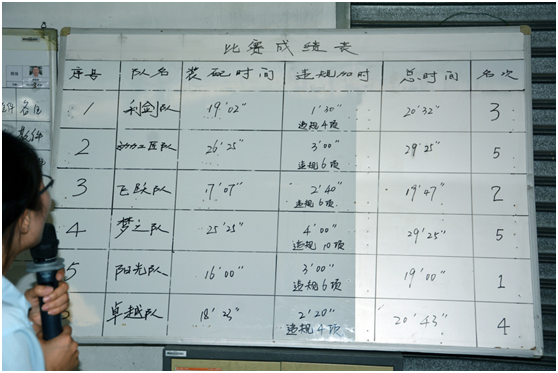 比赛成绩表
序号 队名 装配时间 违规加时 总时间 名次
1 利剑队 19'02" 1'30" 20'32" 3
违规4项
2 26'25" 3'00" 29'25" 5
违规6项
3 飞跃队 17'07" 2'40" 19'47" 2
违规6项
4 梦之队 25'25" 4'00" 29'25" 5
违规10项
5 阳光队 16'00" 3'00" 19'00" 1
违规6项
卓越队 18'23" 2'20" 20'43" 4
违规4项